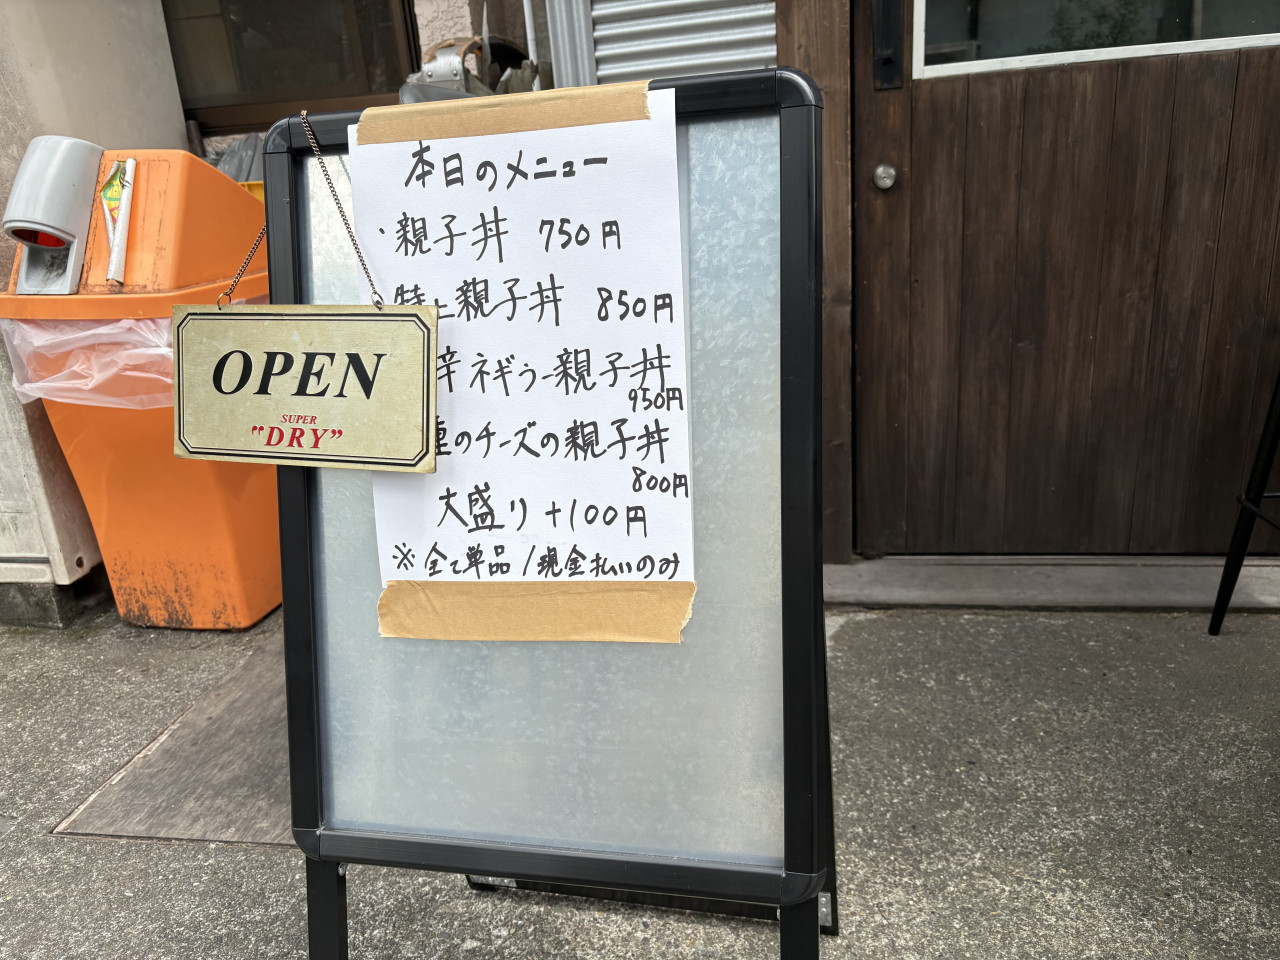 本日のメニュー
・親子丼 750円
特上親子丼 850円
辛ネギラー親子丼
950円
のチーズの親子丼
800円
大盛り +100円
※全て単品/現金払いのみ
OPEN
SUPER
"DRY"